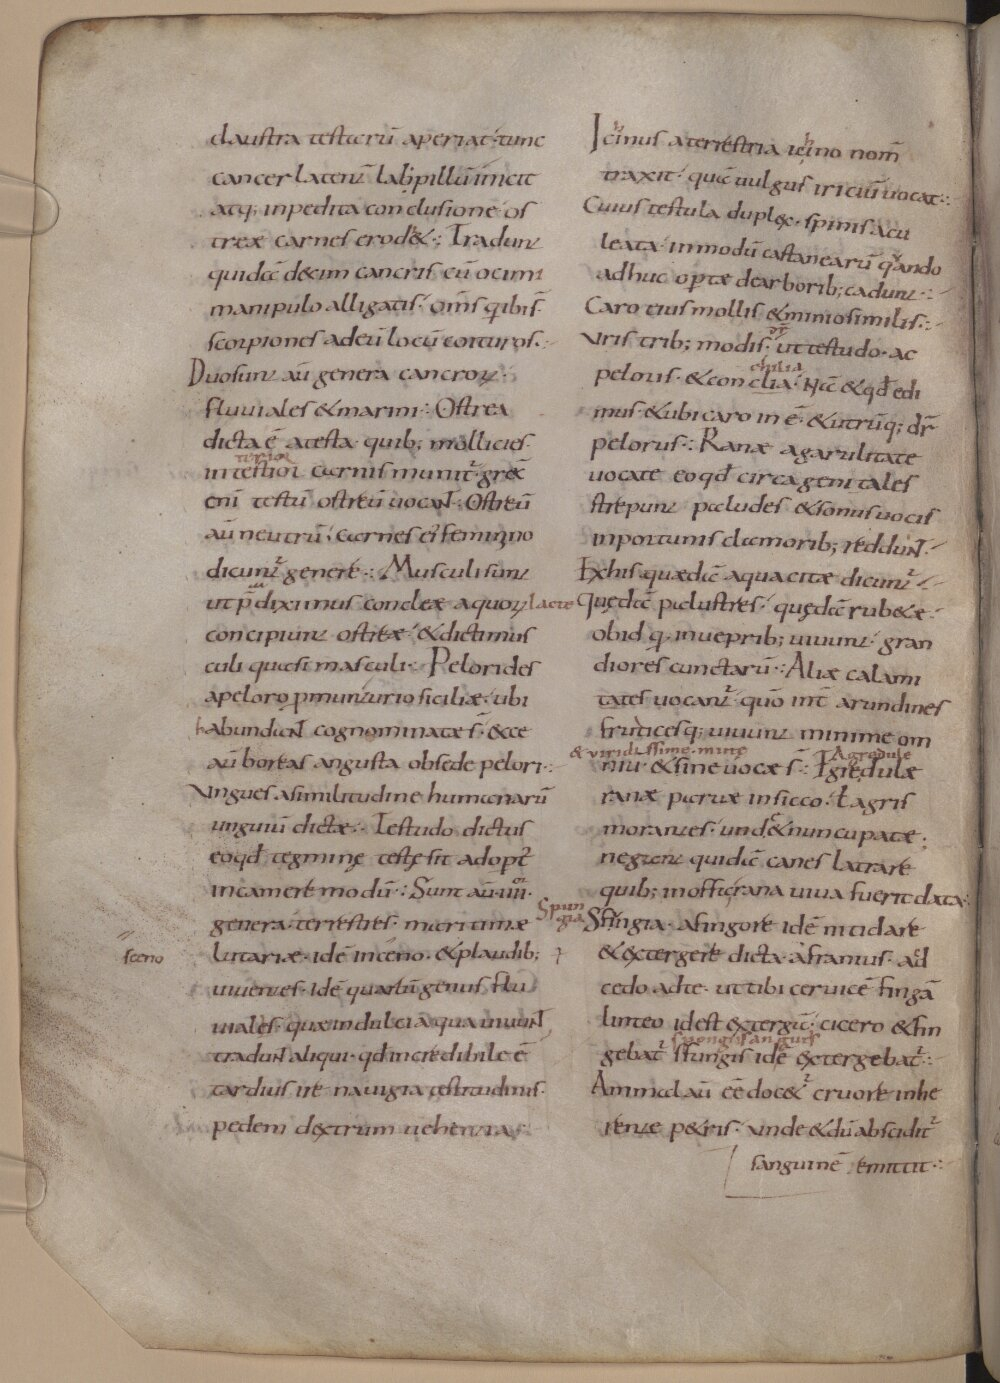 claustra testarū aperiat· tunc
cancer latent᷑ lapillū iniicit
atq; inpedita conclusione os
treae carnes erod&·: Tradunt
quidā decim cancris cū ocimi
manipulo alligatis· om̄s q̄ibis
scorpiones adeū locū coituros·:
Duo sunt aū genera cancrorum·
fluuiales & marini·: Ostrea
dicta ē atesta quib; mollicies
terior
intestioi carnis munit᷑· grece
eni testū ostreū uocant· Ostreū
aū neutrū· carnes ei feminino
dicunt᷑ genere·: Musculi sunt
ut p̄ diximus concleae a quorum lacte
concipiunt ostreae· & dicti mus
culi quasi masculi·: Pelorides
apeloro pmunturio siciliae· ubi
habundant cognominatae s̄· ecce
aū boreas angusta obsede pelori·:
Vngues a similitudine humanarū
unguiū dictae·: Testudo dictus
eoqđ tegmine testę sit adopt᷑
in camere modū·: Sunt aū· iiii·
genera· terrestres· maritimae
lutariae· idē in ceno· & plaudib;
sceno
uiuentes· Idē quartū genus flu
uiales· quae in dulci aqua uiuunt
tradunt aliqui· qđ incredibile ē
tardius ire nauigia testitudinis·
pedem dextrum uehentia·
Icinus a terrestria icino nom̄
traxit· quē uulgus iriciū uocat·:
Cuius testula duplex· spinis acu
leata· in modū castanearū q̄ando
adhuc optae de arborib; cadunt·:
Caro eius mollis & minio similis·:
Vris trib; modis· ut testudo· ac
peloris· & con clia· Nā & qđ edi
chilia
mus· & ubi caro in ē· & utrūq; dr̄
pelorus·: Ranae a garulitate
uocate eoqđ circa genitales
strepunt paludes & sonus uocis
inportunis clamorib; reddunt·
Ex his quaedā aquaticae dicunt᷑·
quędā palustres· quędā rubetae·
obid q̄· in ueprib; uiuunt· gran
diores cunctarū·: Aliae calami
tates uocant᷑· quō int̄ arundines
fruticesq; uiuunt minime om
& viridissime· minte
niū· & sine uoce s̄·: Igredulae
Agredule
ranae paruae in sicco· ł agris
morantes· unde & nuncupatae;
negant quidā canes latrare
quib; in offa rana uiua fuerit data·
Spun
gia
Sfingia· a fingore idē nitidare
& extergere dicta· afranius· ad
cedo adte· ut tibi ceruicē fingā
linteo idest extergā; cicero & fin
spongis sanguis
gebat᷑ sfungis idē extergebat᷑·:
Animal aū eē docet᷑ cruore inhe
rente petris· unde & dū abscidit᷑
sanguinē emittit·: